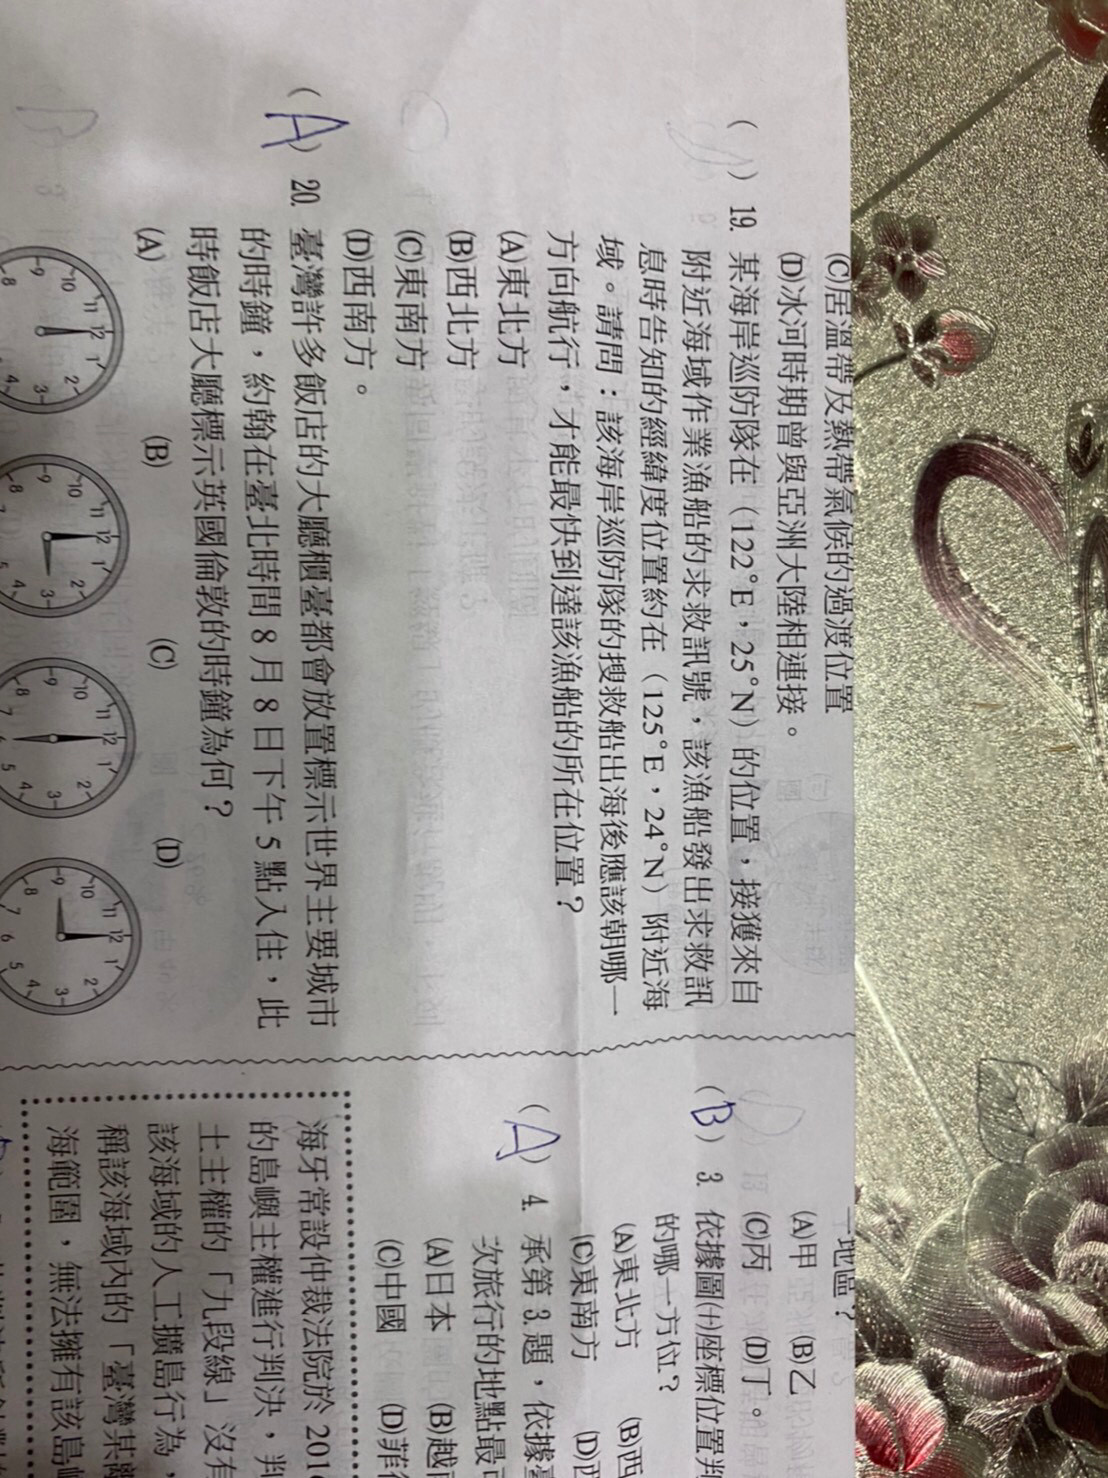 (C)居溫帶及熱帶氣候的過渡位置
(D)冰河時期曾與亞洲大陸相連接。
( ) 19. 某海岸巡防隊在（122°E，25°N）的位置，接獲來自
附近海域作業漁船的求救訊號，該漁船發出求救訊
息時告知的經緯度位置約在（125°E，24°N）附近海
域。請問：該海岸巡防隊的搜救船出海後應該朝哪一
方向航行，才能最快到達該漁船的所在位置？
(A)東北方
(B)西北方
(C)東南方
(D)西南方。
(A) 20. 臺灣許多飯店的大廳櫃臺都會放置標示世界主要城市
的時鐘，約翰在臺北時間8月8日下午5點入住，此
時飯店大廳標示英國倫敦的時鐘為何？
(A) (B) (C) (D)
8 9 10 11 12 1 2 3 4
8 9 10 11 12 1 2 3 4
7 8 9 10 11 12 1 2 3 4 5 6
7 8 9 10 11 12 1 2 3 4 5 6
一地區？
(A)甲 (B)乙
(C)丙 (D)丁。
(B) 3. 依據圖(十)座標位置判
的哪一方位？
(A)東北方 (B)西
(C)東南方 (D)西
(A) 4. 承第3.題，依據
次旅行的地點最
(A)日本 (B)越
(C)中國 (D)菲
海牙常設仲裁法院於201
的島嶼主權進行判決，判
土主權的「九段線」沒有
該海域的人工擴島行為，
稱該海域內的「臺灣某
海範圍，無法擁有該島